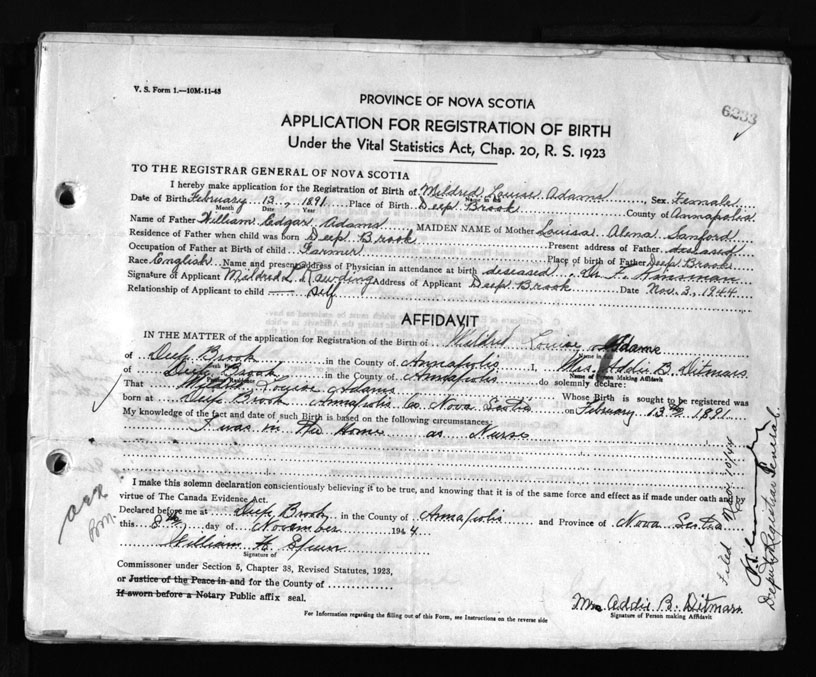 V. S. Form 1.—10M-11-43
6233
PROVINCE OF NOVA SCOTIA
APPLICATION FOR REGISTRATION OF BIRTH
Under the Vital Statistics Act, Chap. 20, R. S. 1923
TO THE REGISTRAR GENERAL OF NOVA SCOTIA
I hereby make application for the Registration of Birth of Mildred Louise Adams Sex Female
Date of Birth February 13, 1891 Place of Birth Deep Brook County of Annapolis
Month Date Year
Name of Father William Edgar Adams MAIDEN NAME of Mother Louisa Alma Sanford
Residence of Father when child was born Deep Brook Present address of Father deceased
Occupation of Father at Birth of child Farmer Place of birth of Father Deep Brook
Race English Name and present address of Physician in attendance at birth deseased
Signature of Applicant Mildred L. Rawding Address of Applicant Deep Brook Date Nov. 3, 1944
Relationship of Applicant to child Self
AFFIDAVIT
IN THE MATTER of the application for Registration of the Birth of Mildred Louise Adams
Name in
of Deep Brook in the County of Annapolis I, Mrs. Addie B. Ditmars
Name of Person Making Affidavit
of Deep Brook in the County of Annapolis do solemnly declare:
That Mildred Louise Adams Whose Birth is sought to be registered was
born at Deep Brook Annapolis Co Nova Scotia on February 13th 1891
My knowledge of the fact and date of such Birth is based on the following circumstances:
I was in the Home as Nurse
I make this solemn declaration conscientiously believing it to be true, and knowing that it is of the same force and effect as if made under oath and by
virtue of The Canada Evidence Act.
Declared before me at Deep Brook in the County of Annapolis and Province of Nova Scotia
this 8th day of November 1944
William H. Spurr
Signature of
Commissioner under Section 5, Chapter 38, Revised Statutes, 1923,
or Justice of the Peace in and for the County of
If sworn before a Notary Public affix seal.
Mrs Addie B. Ditmars
Signature of Person making Affidavit
For Information regarding the filling out of this Form, see Instructions on the reverse side
Filed Nov 10/44
Deputy Registrar General